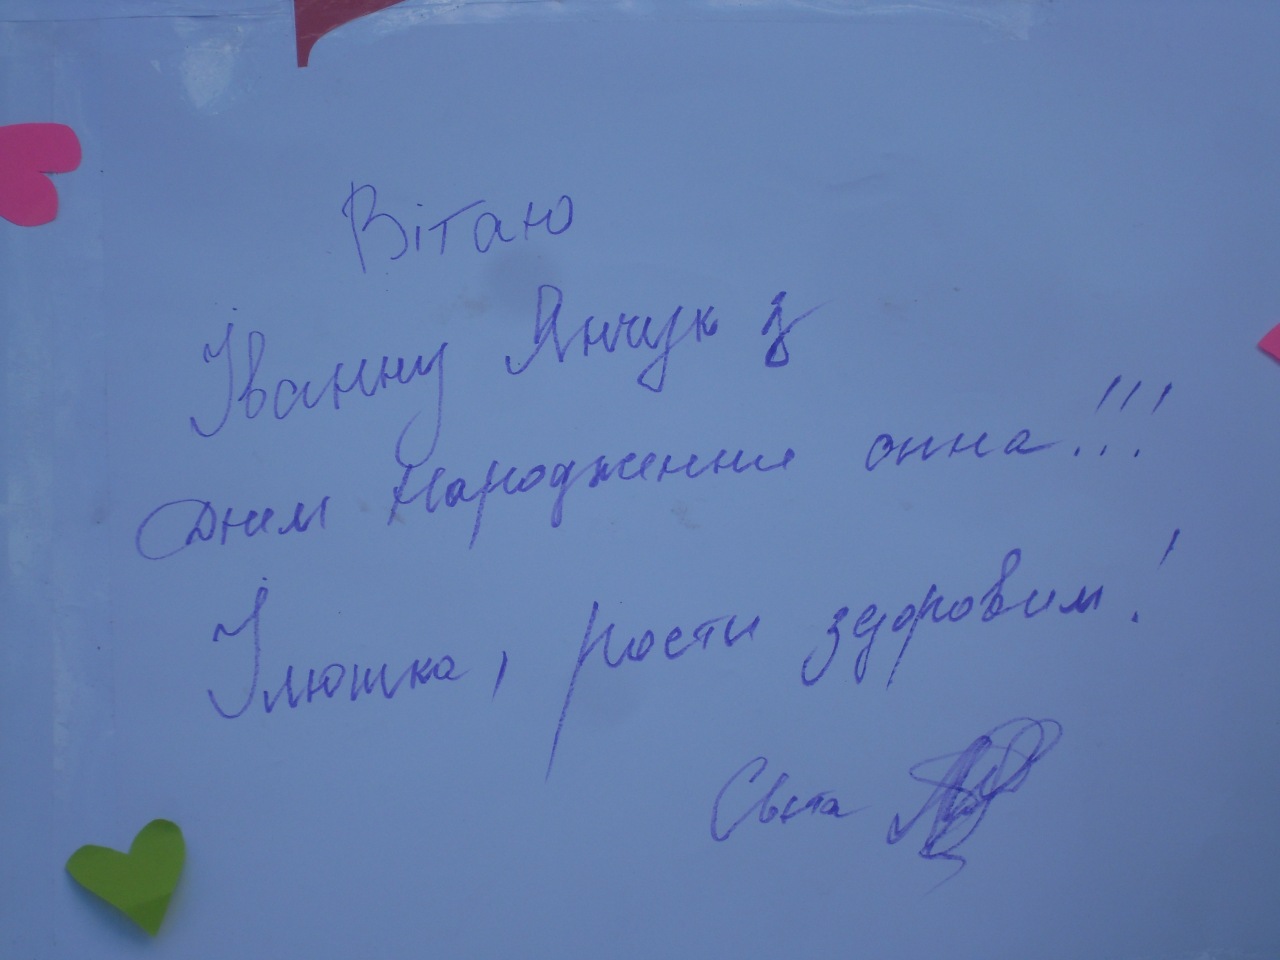 Вітаю
Іванну Янчук з
Днем Народження сина!!!
Ілюшка, рости здоровим!
Света